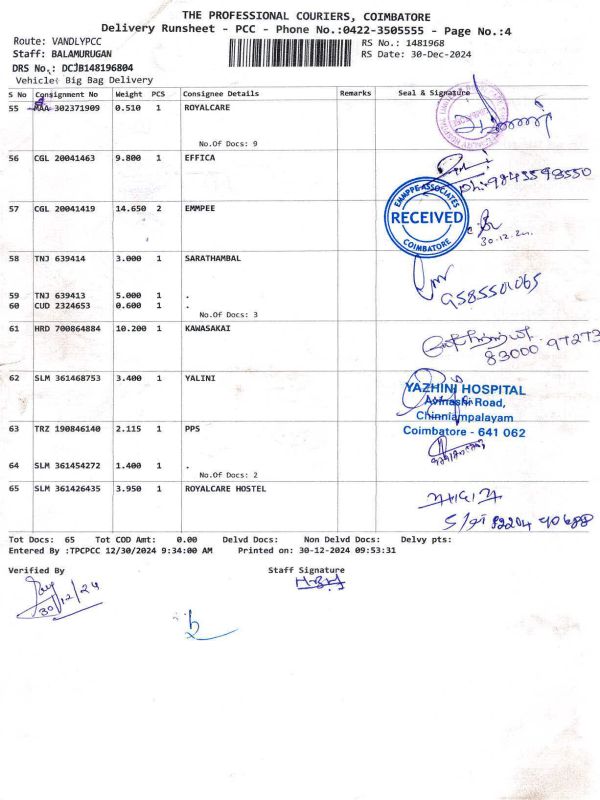 THE PROFESSIONAL COURIERS, COIMBATORE
Delivery Runsheet - PCC - Phone No.:0422-3505555 - Page No.:4
Route: VANDLYPCC
RS No.: 1481968
Staff: BALAMURUGAN
RS Date: 30-Dec-2024
DRS No.: DCJB148196804
Vehicle: Big Bag Delivery
S No Consignment No Weight PCS Consignee Details Remarks Seal & Signature
55 MAA 302371909 0.510 1 ROYALCARE
No.Of Docs: 9
56 CGL 20041463 9.800 1 EFFICA
Ph:9843598550
57 CGL 20041419 14.650 2 EMMPEE
EMMPPE ASSOCIATES
RECEIVED
COIMBATORE
30.12.24
58 TNJ 639414 3.000 1 SARATHAMBAL
9585501065
59 TNJ 639413 5.000 1 .
60 CUD 2324653 0.600 1 .
No.Of Docs: 3
61 HRD 700864884 10.200 1 KAWASAKAI
83000 97273
62 SLM 361468753 3.400 1 YALINI
YAZHINI HOSPITAL
Avinashi Road,
Chinniampalayam
Coimbatore - 641 062
63 TRZ 190846140 2.115 1 PPS
64 SLM 361454272 1.400 1 .
No.Of Docs: 2
65 SLM 361426435 3.950 1 ROYALCARE HOSTEL
Tot Docs: 65 Tot COD Amt: 0.00 Delvd Docs: Non Delvd Docs: Delvy pts:
Entered By :TPCPCC 12/30/2024 9:34:00 AM Printed on: 30-12-2024 09:53:31
Verified By Staff Signature
30/12/24